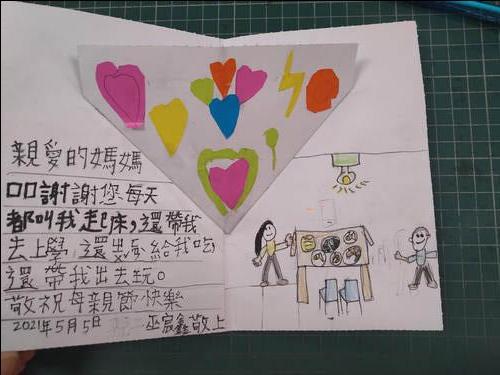 親愛的媽媽
口口謝謝您每天
都叫我起床,還帶我
去上學 還出&給我吃
還帶我出去玩。
敬祝母親節快樂
2021年5月5日 巫宸鑫敬上